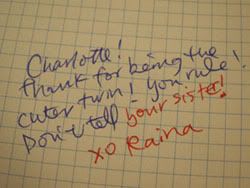 Charlotte!
thank for being the
cuter twin! you rule!
Don't tell your sister!
xo Raina